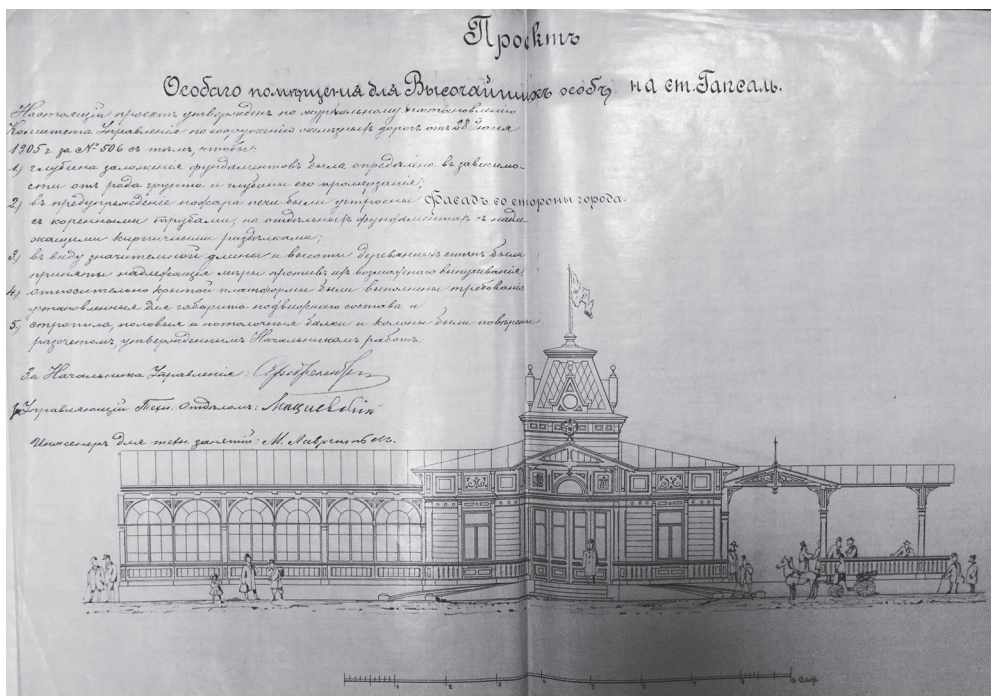 Проектъ
Особаго помѣщенія для Высочайшихъ особъ на ст. Гапсаль.
Настоящій проектъ утвержденъ по журнальному постановленію
Комитета Управленія по сооруженію желѣзныхъ дорогъ отъ 28 Іюня
1905 г за № 506 съ тѣмъ, чтобы:
1) глубина заложенія фундаментовъ была опредѣлена въ зависимо-
сти отъ рода грунта и глубины его промерзанія;
2) въ предупрежденіе пожара печи были устроены
съ коренными трубами, на отдѣльныхъ фундаментахъ съ надле-
жащими кирпичными раздѣлками;
3) въ виду значительной длины и высоты деревянныхъ стѣнъ были
приняты надлежащія мѣры противъ ихъ возможнаго выпучиванія;
4) относительно крытой платформы были выполнены требованія
установленныя для габарита подвижнаго состава и
5) стропила, половыя и потолочныя балки и колоны были повѣрены
разсчетомъ, утвержденнымъ Начальникомъ работъ.
Фасадъ со стороны города.
За Начальника Управленія:
За Управляющій Техн. Отдѣломъ: Мациевскій
Инженеръ для техн. занятій: М. Лаврентьевъ.
1 2 3 4 5 6 саж.